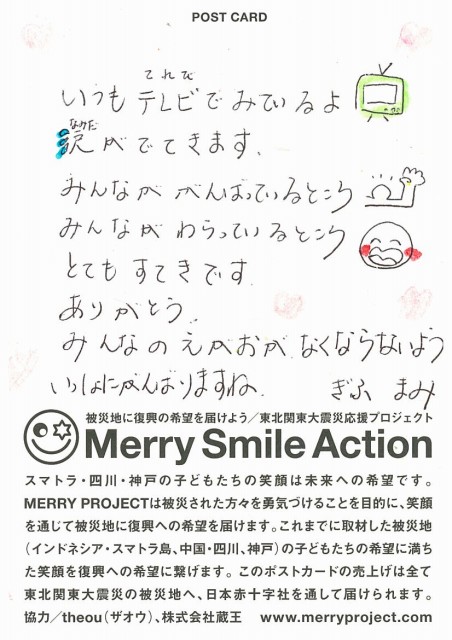 POST CARD
てれび
いつも テレビで みているよ
なみだ
涙 が でてきます、
みんなが がんばっているところ
みんなが わらっているところ
とても すてきです
ありがとう、
みんなの えがおが なくならないよう
いっしょにがんばりますね、 ぎふ まみ
被災地に復興の希望を届けよう/東北関東大震災応援プロジェクト
Merry Smile Action
スマトラ・四川・神戸の子どもたちの笑顔は未来への希望です。
MERRY PROJECTは被災された方々を勇気づけることを目的に、笑顔
を通じて被災地に復興への希望を届けます。これまでに取材した被災地
(インドネシア・スマトラ島、中国・四川、神戸)の子どもたちの希望に満ち
た笑顔を復興への希望に繋げます。このポストカードの売上げは全て
東北関東大震災の被災地へ、日本赤十字社を通して届けられます。
協力/theou(ザオウ)、株式会社蔵王 www.merryproject.com